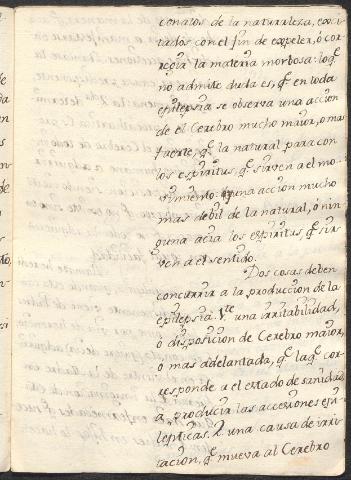 conatos de la naturaleza, exci
tados con el fin de expeler, ó cor
regir la materia morbosa: loqe.
no admite duda es, qe. en toda
epilepsia se observa una accion
de el Cerebro mucho maior, o mas
fuerte, qe. la natural para con
los espiritus, qe. sirven a el mo
vimiento: y una accion mucho
mas debil de la natural, ó nin
guna acia los espiritus, qe. sir
ven a el sentido.
Dos cosas deben
concurrir a la produccion de la
epilepsia. 1ª. una irritabilidad,
ó disposicion de Cerebro maior,
o mas adelantada, qe. la qe. cor
responde a el estado de sanidad,
a producir las accesiones epi
lepticas. 2. una causa de irri
tacion, qe. mueva al Cerebro